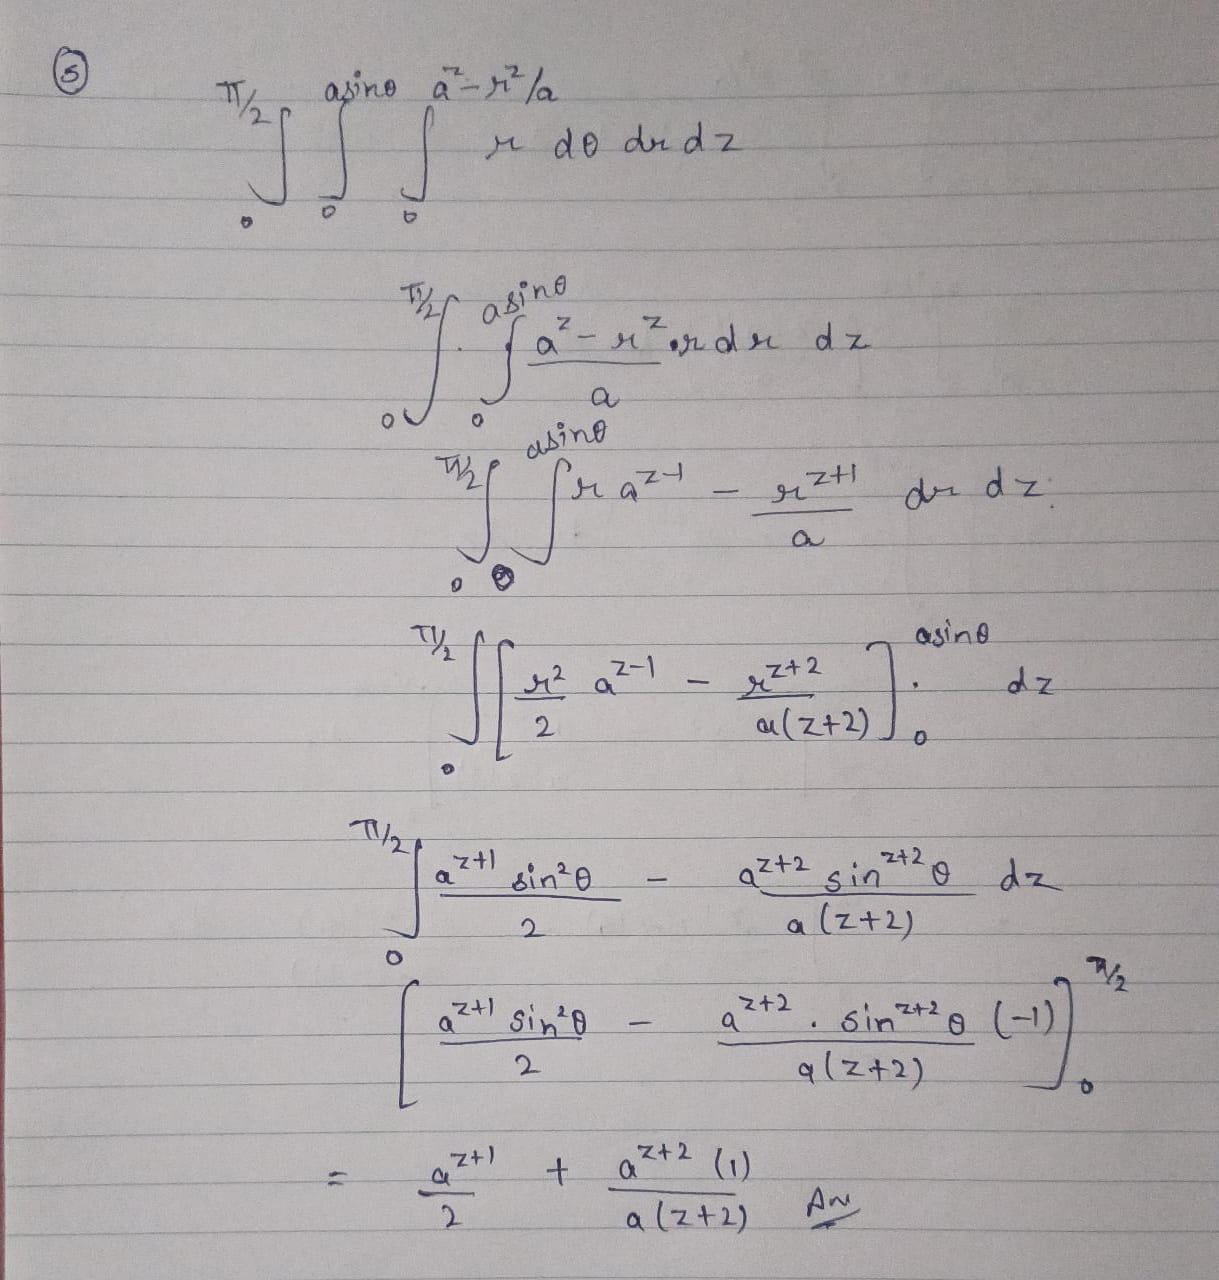 ⑤
∫₀^{π/2} ∫₀^{asinθ} ∫₀^{a^z-r²/a} r dθ dr dz
∫₀^{π/2} ∫₀^{asinθ} (a^z - r^z)/a . r dr dz
∫₀^{π/2} ∫₀^{asinθ} r a^{z-1} - r^{z+1}/a dr dz.
∫₀^{π/2} [r²/2 a^{z-1} - r^{z+2}/a(z+2)]₀^{asinθ} . dz
∫₀^{π/2} a^{z+1} sin²θ/2 - a^{z+2} sin^{z+2}θ/a(z+2) dz
[a^{z+1} sin²θ/2 - a^{z+2} . sin^{z+2}θ/a(z+2) (-1)]₀^{π/2}
= a^{z+1}/2 + a^{z+2} (1)/a(z+2) An